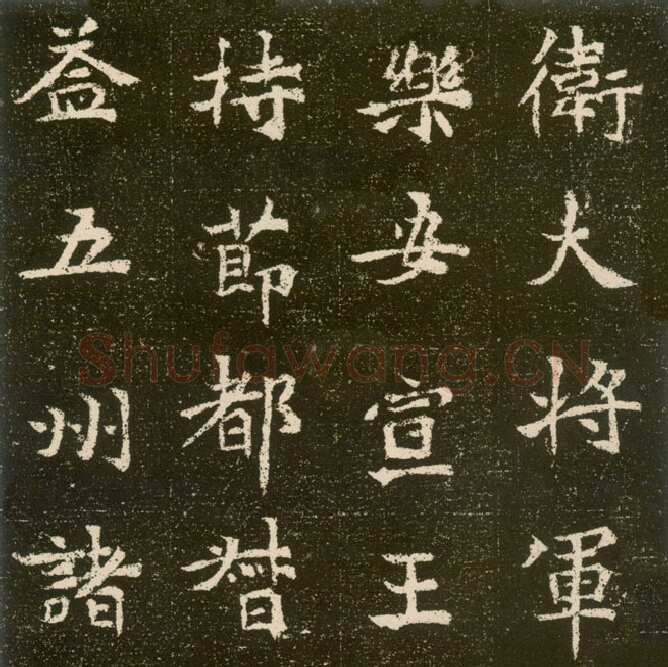 衛大将軍
樂安宣王
持節都督
益五州諸
Shufawang.CN